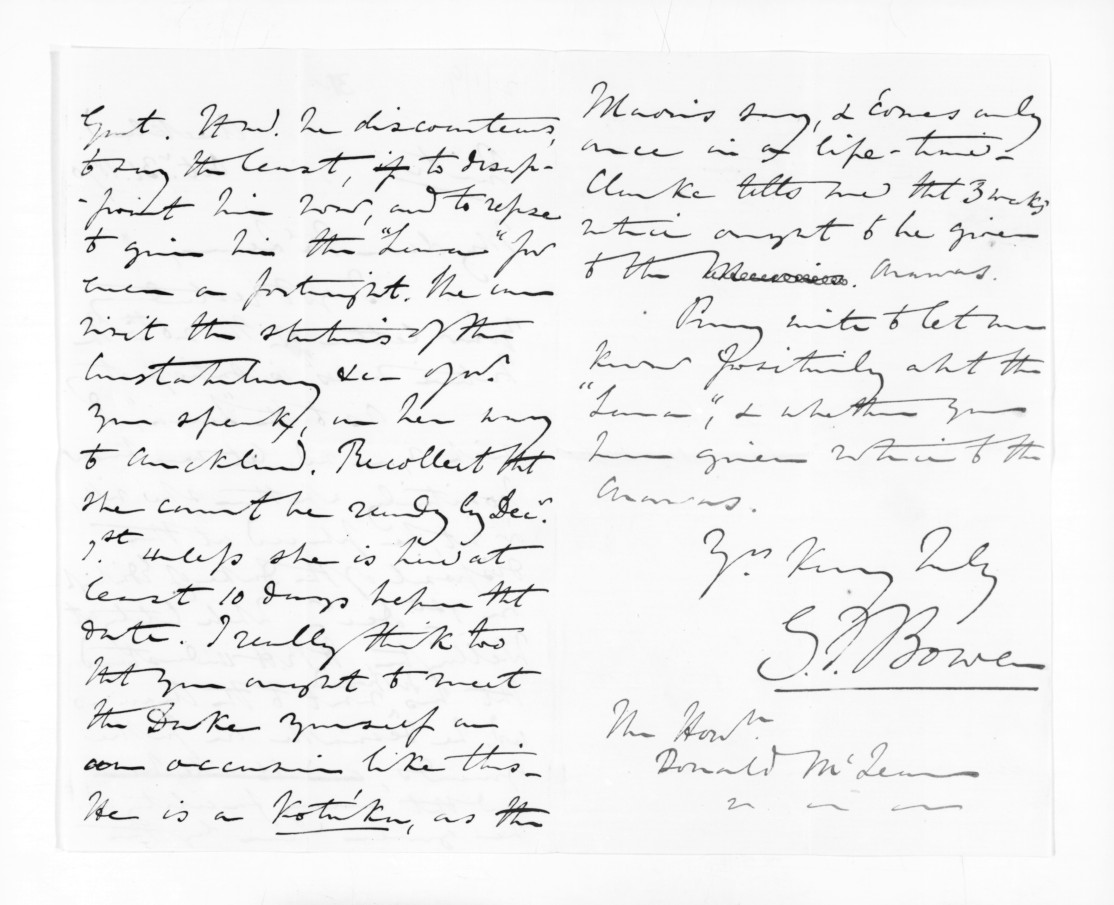 Govt. It wd. be discourteous,
to say the least, if to disap-
-point him now, and to refuse
to give him the "Luna" for
even a fortnight. She can
visit the stations of the
Constabulary &c - of wh.
you speak, on her way
to Auckland. Recollect tht
she cannot be ready by Decr.
1st unless she is here at
least 10 days before tht
date. I really think too
tht you ought to meet
the Duke yourself on
an occasion like this -
He is a Kotúku, as the
Maoris say, & comes only
once in a life-time -
Clarke tells me tht 3 weeks
notice ought to be given
to the Arawas.
Pray write & let me
know positively abt the
"Luna", & whether you
have given notice to the
Arawas.
Yrs. very truly
G.F. Bowen
The Honble
Donald McLean